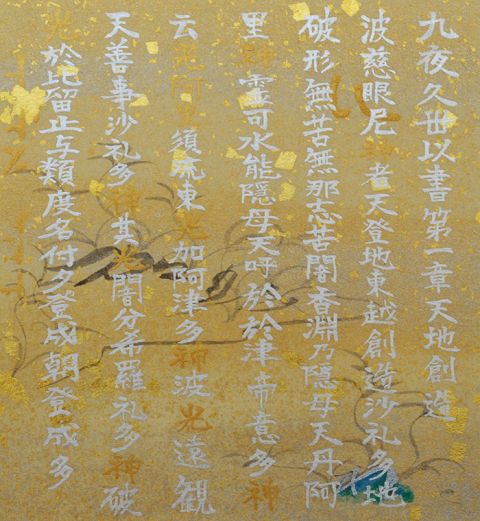 九夜久世以書第一章天地創造
波慈眼尼神者天登地東越創造沙礼多地
破形無苦無那志苦闇杳淵乃隠母天丹阿
里神霊可水能隠母天呼於於津帝意多神
云光阿須流東光加阿津多神波光遠観
天善事沙礼多神其光闇分希羅礼多神破
光於比留止与類度名付夕登成朝登成多